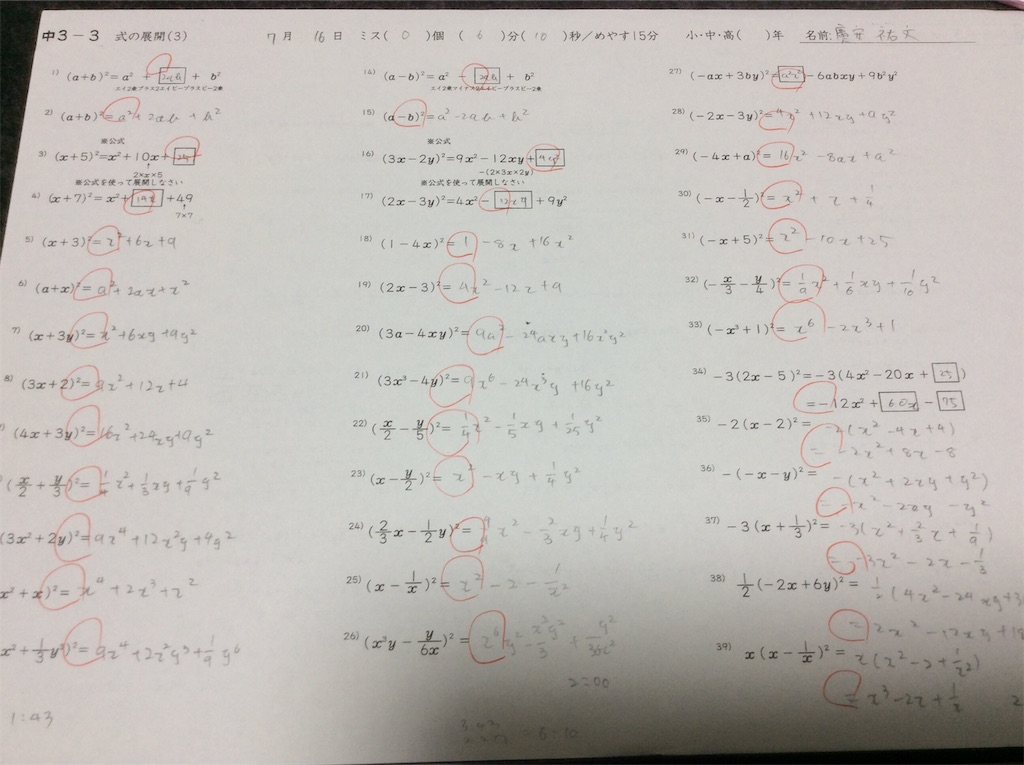 中3－3 式の展開(3) 7月 16日 ミス( 0 )個 ( 6 )分( 10 )秒／めやす15分 小・中・高( )年 名前:
1) (a+b)²=a² + 2ab + b²
エイ2乗プラス2エイビープラスビー2乗
2) (a+b)²=a²+2ab+b²
※公式
3) (x+5)²=x²+10x+25
2×x×5
※公式を使って展開しなさい
4) (x+7)²=x²+14x+49
7×7
5) (x+3)²=x²+6x+9
6) (a+x)²=a²+2ax+x²
7) (x+3y)²=x²+6xy+9y²
8) (3x+2)²=9x²+12x+4
(4x+3y)²=16x²+24xy+9y²
(x/2+y/3)²=1/4x²+1/3xy+1/9y²
(3x²+2y)²=9x⁴+12x²y+4y²
x²+x)²=x⁴+2x³+x²
x²+1/3y³)²=9x⁴+2x²y³+1/9y⁶
1:43
14) (a-b)²=a² - 2ab + b²
エイ2乗マイナス2エイビープラスビー2乗
15) (a-b)²=a²-2ab+b²
※公式
16) (3x-2y)²=9x²-12xy+4y²
-(2×3x×2y)
※公式を使って展開しなさい
17) (2x-3y)²=4x²-12xy+9y²
18) (1-4x)²=1-8x+16x²
19) (2x-3)²=4x²-12x+9
20) (3a-4xy)²=9a²-24axy+16x²y²
21) (3x³-4y)²=9x⁶-24x³y+16y²
22) (x/2-y/5)²=1/4x²-1/5xy+1/25y²
23) (x-y/2)²=x²-xy+1/4y²
24) (2/3x-1/2y)²=4/9x²-2/3xy+1/4y²
25) (x-1/x)²=x²-2-1/x²
26) (x³y-y/6x)²=x⁶y²-x²y²/3+y²/36x²
2:00
27) (-ax+3by)²=a²x²-6abxy+9b²y²
28) (-2x-3y)²=4x²+12xy+9y²
29) (-4x+a)²=16x²-8ax+a²
30) (-x-1/2)²=x²+x+1/4
31) (-x+5)²=x²-10x+25
32) (-x/3-y/4)²=1/9x²+1/6xy+1/16y²
33) (-x³+1)²=x⁶-2x³+1
34) -3(2x-5)²=-3(4x²-20x+25)
=-12x²+60x-75
35) -2(x-2)²=-2(x²-4x+4)
=-2x²+8x-8
36) -(-x-y)²=-(x²+2xy+y²)
=-x²-2xy-y²
37) -3(x+1/3)²=-3(x²+2/3x+1/9)
=-3x²-2x-1/3
38) 1/2(-2x+6y)²=1/2(4x²-24xy+3
=2x²-12xy+18
39) x(x-1/x)²=x(x²-2+1/x²)
=x³-2x+1/x
2